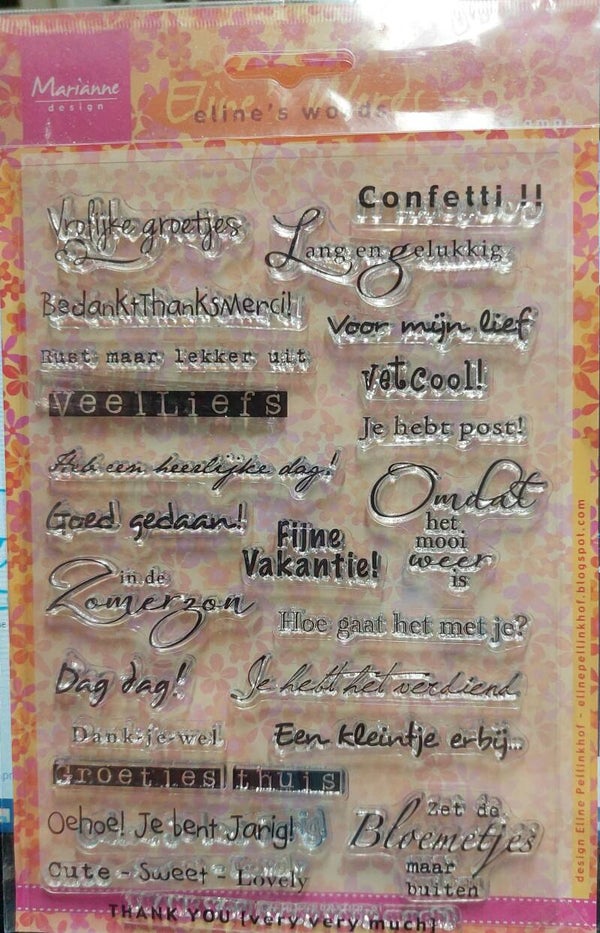 Marianne
design
eline's words
Confetti !!
Vrolijke groetjes
Lang en gelukkig
Bedankt Thanks Merci!
Voor mijn lief
Rust maar lekker uit
vet cool!
Veel Liefs
Je hebt post!
Heb een heerlijke dag!
Omdat
het
mooi
weer
is
Goed gedaan!
Fijne
Vakantie!
in de
Zomerzon
Hoe gaat het met je?
Dag dag!
Je hebt het verdiend
Dank-je-wel
Een kleintje erbij...
Groetjes thuis
Zet de
Bloemetjes
maar
buiten
Oehoe! Je bent Jarig!
Cute - Sweet - Lovely
THANK YOU (very very much)
design Eline Pellinkhof - elinepellinkhof.blogspot.com